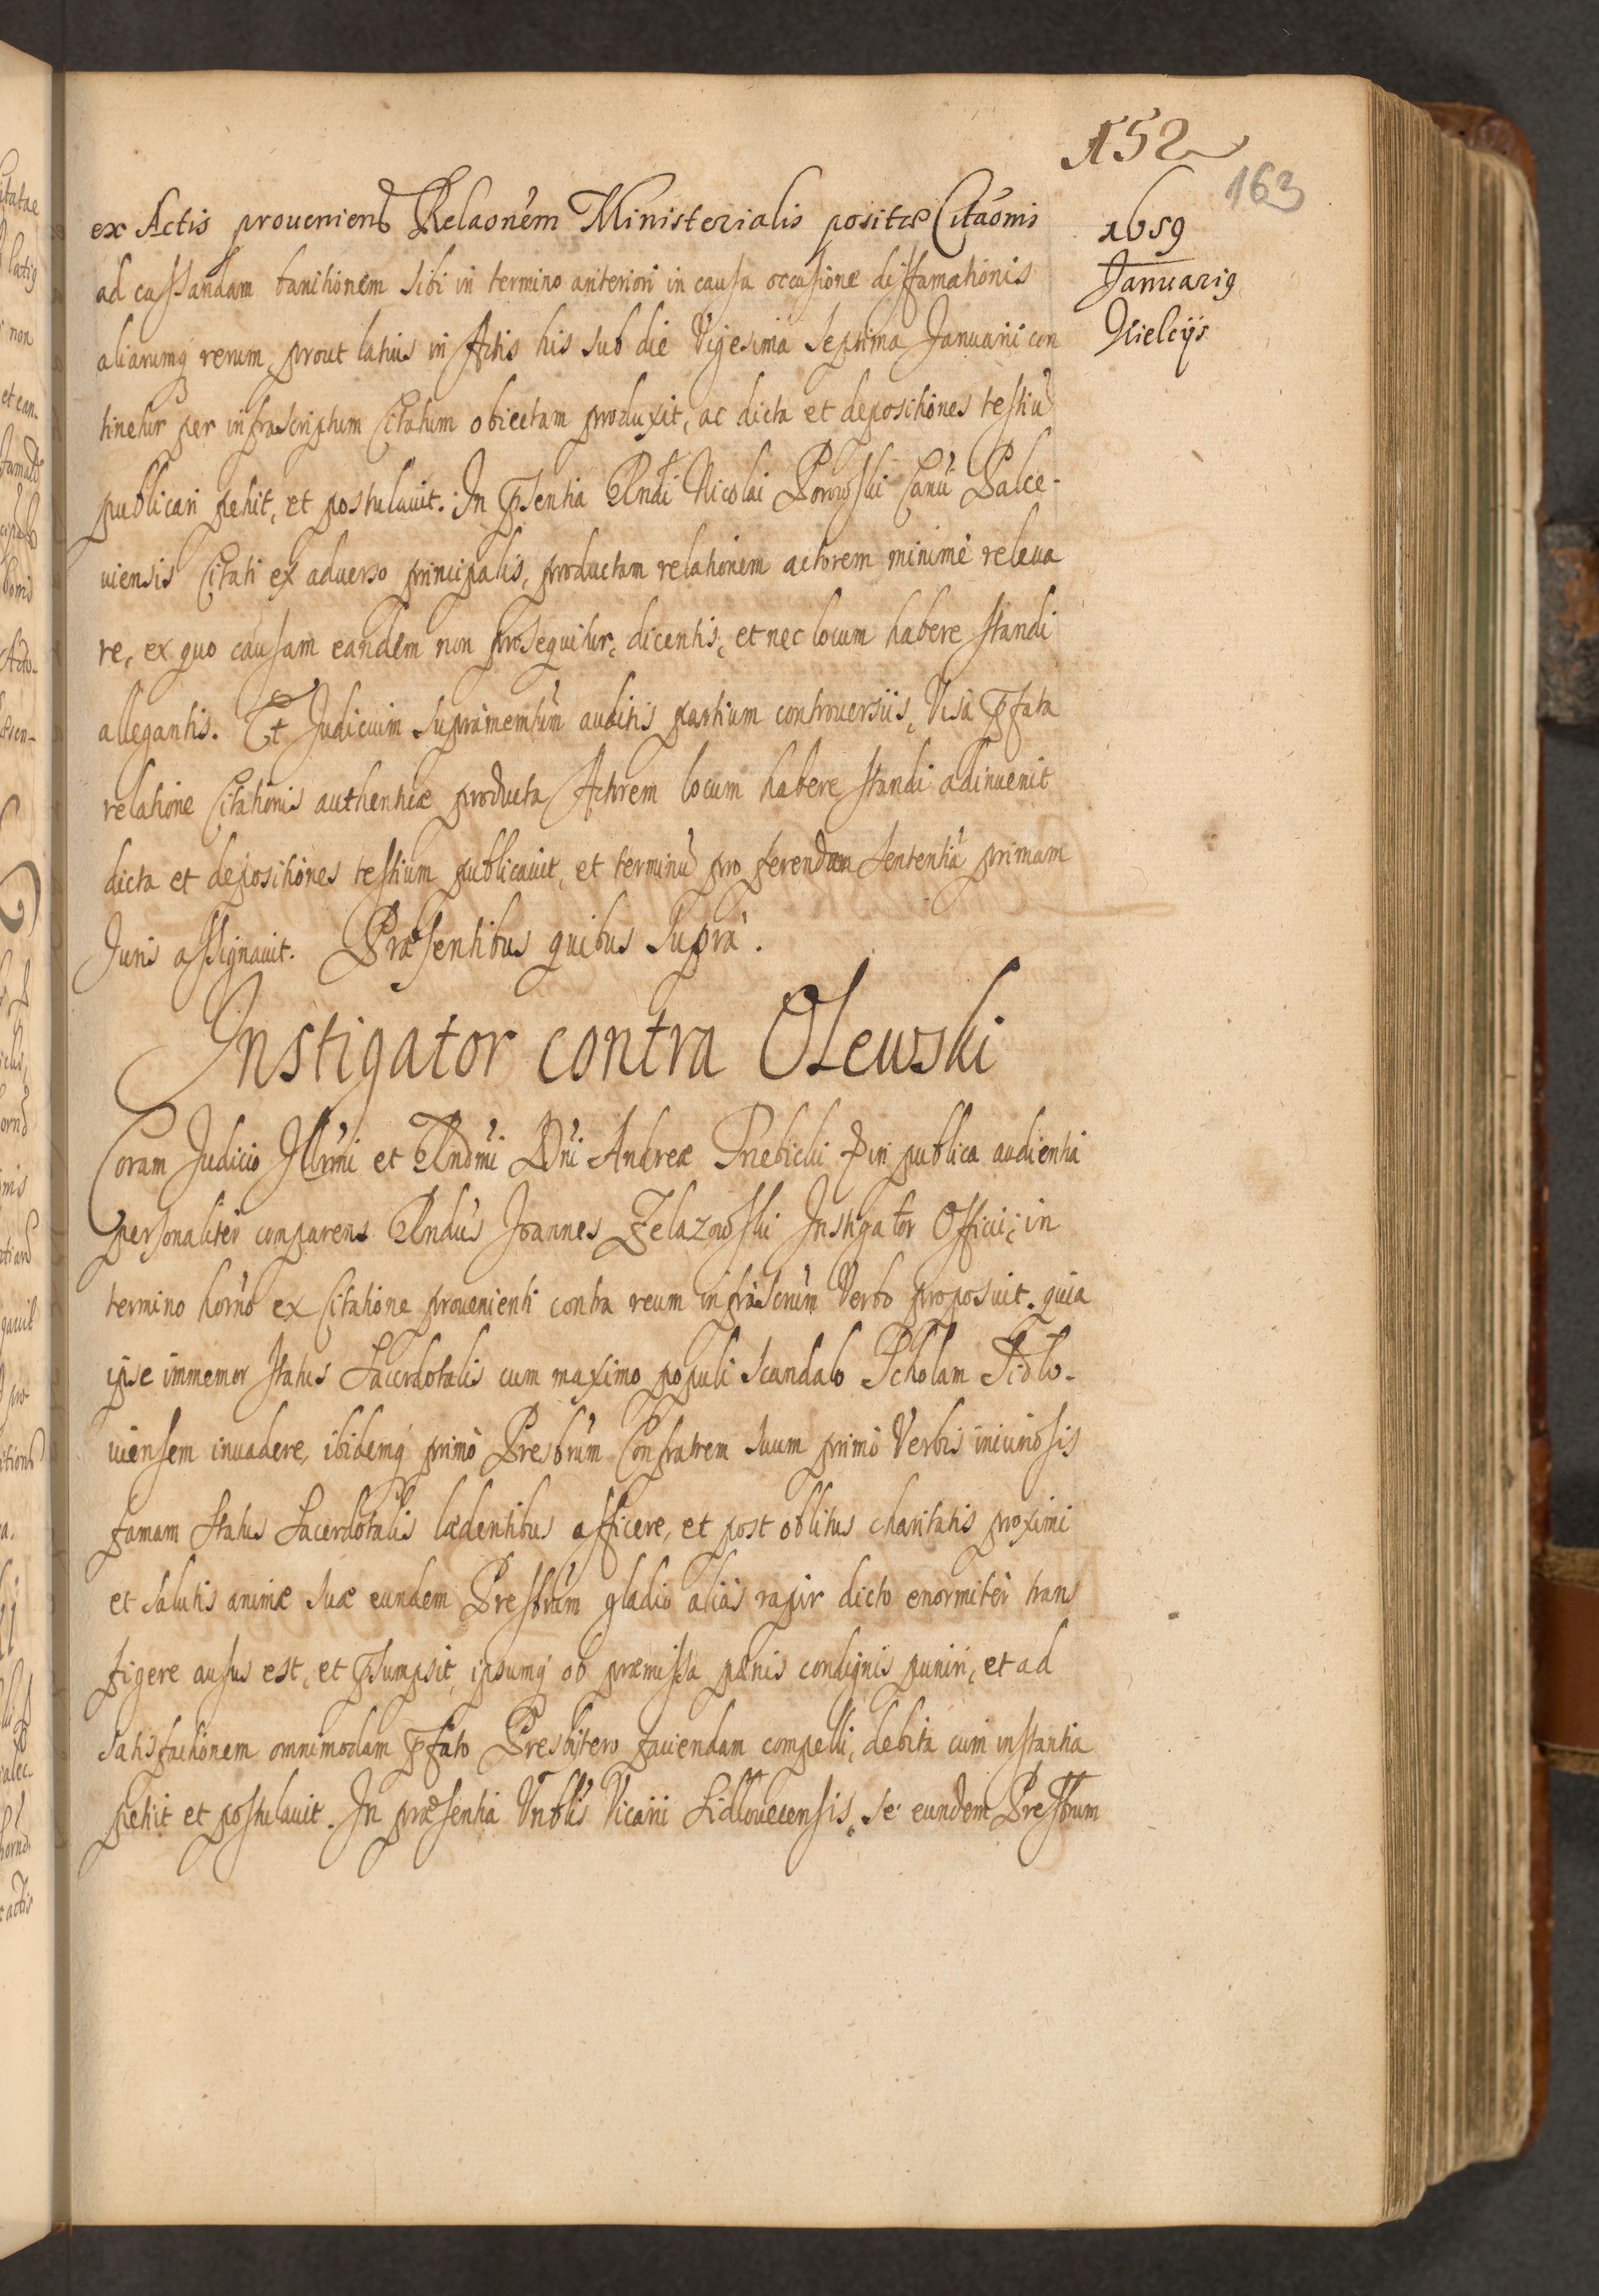 152
163
1659
Januarij
Kielcijs
ex Actis proueniens Relaonem Ministerialis positæ Citaonis
ad cassandam banitionem sibi in termino anteriori in causa occasione diffamationis
aliarumq rerum prout latius in Actis his sub die Vigesima Septima Januarii con
tinetur per infrascriptum Citatum obiectam produxit, ac dicta et depositiones testiu
publicari petit, et postulauit. In pсentia Rndi Nicolai Porowski Canu Palce-
uiensis Citati ex aduerso principalis, productam relationem actorem minimè releua
re, ex quo causam eandem non prosequitur, dicentis, et nec locum habere standi
allegantis. Et Judicium supramemtum auditis partium controuersiis, Visa pfata
relatione Citationis authenticæ producta Actorem locum habere standi adinuenit
dicta et depositiones testium publicauit, et terminu pro ferendam Sententia primam
Juris assignauit. Præsentibus quibus supra.
Instigator contra Olewski
Coram Judicio Illrmi et Rndmi Dni Andreæ Trebicki in publica audientia
personaliter comparens Rndus Joannes Zelazowski Instigator Officii, in
termino horno ex Citatione prouenienti contra reum infrascrum Verbo proposuit. quia
ipse immemor status Sacerdotalis cum maximo populi scandalo Scholam Sidlo-
uiensem inuadere, ibidemq primò Presbrum Confratrem suum primò Verbis iniuriosis
famam status Sacerdotalis lædentibus afficere, et post oblitus charitatis proximi
et salutis animæ suæ eundem Presbrum gladio alias rapir dicto enormiter trans
figere ausus est, et psumpsit, ipsumq ob præmissa pænis condignis puniri, et ad
satisfactionem omnimodam pfato Presbitero faciendam compelli, debita cum instantia
petit et postulauit. In præsentia Vnblis Vicarii Sidlouecensis, se eundem Presbrum